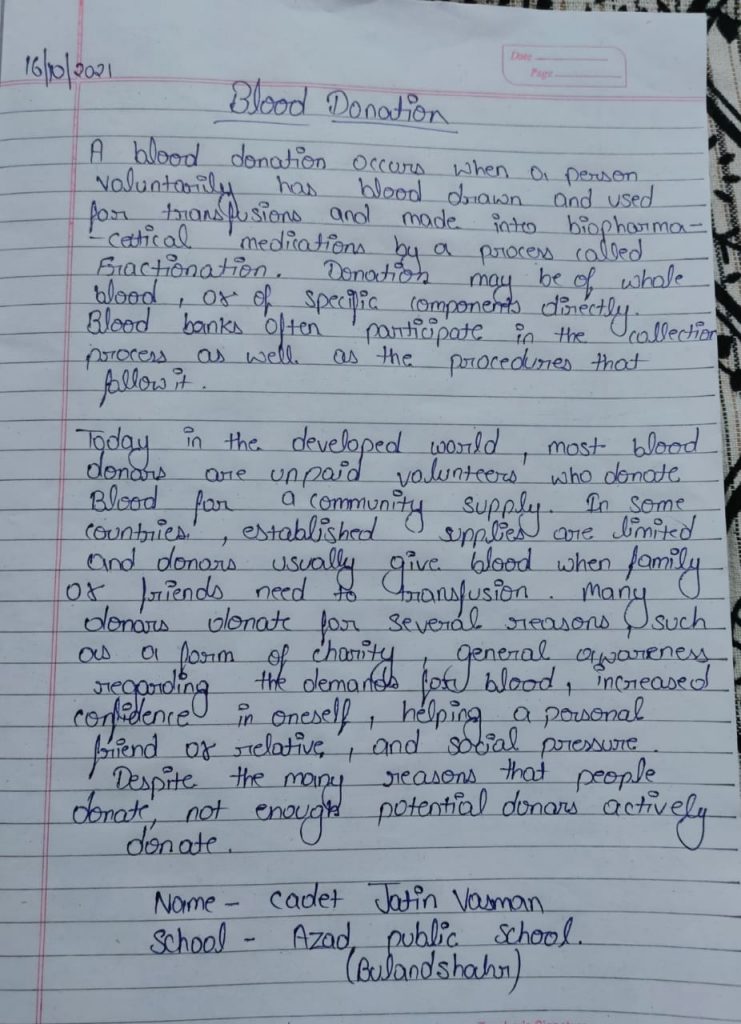 16/10/2021
Date
Page
Blood Donation
A blood donation occurs when a person
voluntarily has blood drawn and used
for transfusions and made into biopharma-
-cetical medications by a process called
Fractionation. Donation may be of whole
blood, or of specific components directly.
Blood banks often participate in the collection
process as well as the procedures that
follow it.
Today in the developed world, most blood
donars are unpaid volunteers who donate
Blood for a community supply. In some
countries, established supplies are limited
and donars usually give blood when family
or friends need to transfusion. Many
donars donate for several reasons, such
as a form of charity, general awareness
regarding the demands for blood, increased
confidence in oneself, helping a personal
friend or relative, and social pressure.
Despite the many reasons that people
donate, not enough potential donars actively
donate.
Name - Cadet Jatin Varman
School - Azad public school.
(Bulandshahr)